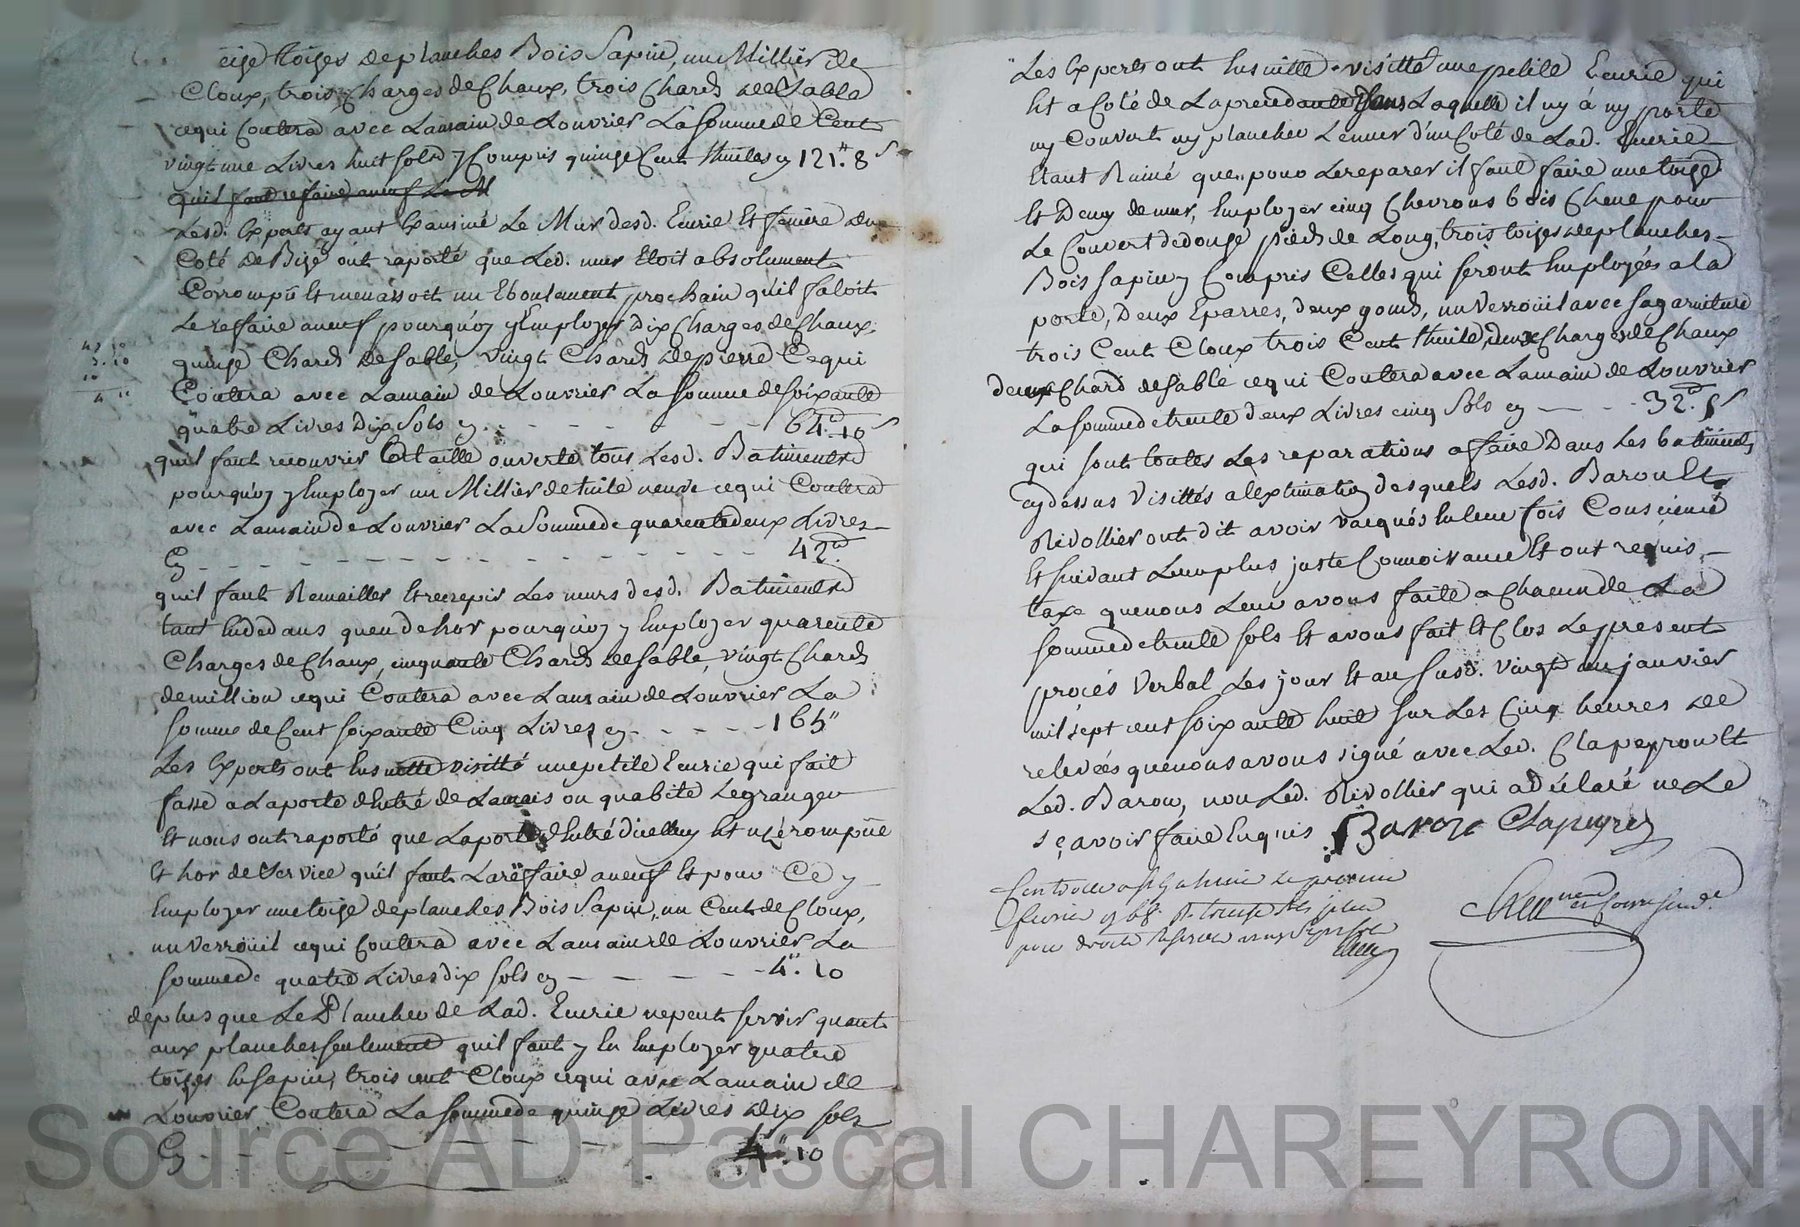 toises de planches Bois Sapin, un Millier de
Cloux, trois Charges de Chaux, trois Chards de Sable
cequi Coutera avec Lamain de Louvrier La Somme de Cent
vingt une Livres huit sols y Compris quinze Cent thuiles cy 121.'' 8 s
quil faut refaire aneuf Le M
Lesd. Experts ayant Examiné Le Mur desd. Ecurie Et feniere du
Coté de Bize ont raporté que Led. mur Etoit absolument
Corrompû Et menassoit un Eboulement prochain quil faloit
Le reffaire aneuf pourquoy y Employer Dix Charges de Chaux,
quinze Chards de Sable, vingt Chards de pierre Cequi
Coutera avec Lamain de Louvrier La Somme de Soixante
quatre Livres Dix Sols cy - - - 64.'' 10 s
quil faut recouvrir a taille ouverte tous Lesd. Batiments
pourquoy y Employer un Millier de tuile neuve cequi Coutera
avec Lamain de Louvrier La Somme de quarente deux Livres
Cy - - - 42.''
quil faut Remailler Et recrepir Les murs desd. Batiments
tant En dedans quen dehor pourquoy y Employer quarente
Charges de Chaux, cinquante Chards de Sable, vingt Chards
de million cequi Coutera avec Lamain de Louvrier La
Somme de Cent Soixante Cinq Livres cy - - - 165''
Les Experts ont Ensuitte visitté une petite Ecurie qui fait
fasse a La porte dEntré de La mais on quabite Le granger
Et nous ont raporté que La porte dEntré dicelluy Est usé rompüe
Et hor de Service quil faut La reffaire aneuf Et pour Ce y
Employer une toize de planches Bois Sapin, un Cent de Cloux,
un Verroüil cequi Coutera avec Lamain de Louvrier La
Somme de quatre Livres dix Sols cy - - - 4.'' 10
deplus que Le Plancher de Lad. Ecurie ne peut Servir quant
aux planches Seulement quil faut y En Employer quatre
toizes En Sapin, trois cent Cloux cequi avec Lamain de
Louvrier Coutera La Somme de quinze Livres dix Sols
Cy - - - 4.'' 10
Les Experts ont Ensuitte visitté une petite Ecurie qui
Est a Coté de La precedante dans Laquelle il ny à ny porte
ny Couvert ny plancher Le mur d'un Coté de Lad. Ecurie
Etant Ruiné que pour Le reparer il faut faire une toize
Et Demy de mur, Employer cinq Chevrons bois Chene pour
Le Couvert de douze pieds de Long, trois toizes de planches
Bois Sapin y Compris Celles qui Seront Employées a la
porte, Deux Eparres, deux gonds, un Verroüil avec Sa garniture
trois Cent Cloux trois Cent thuile, deux Charges de Chaux
deux Chard de Sable cequi Coutera avec Lamain de Louvrier
La Somme de trente deux Livres cinq Sols cy - - - 32.'' 5 s
qui Sont toutes Les reparations a faire Dans Les batiments
cy dessus Visittés a lextimation desquels Lesd. Baron Et
Rivollier ont dit avoir vacqués En leur fois Conscience
Et Suivant Leur plus juste Connoissance Et ont requis
taxe que nous Leur avons faite a Chacun de La
Somme de trente Sols Et avons fait Et Clos Le present
procés Verbal Les jour Et an Susd. vingt un janvier
mil Sept cent Soixante huit Sur Les Cinq heures de
relevées que nous avons Signé avec Led. Clapeyron Et
Led. Baron, non Led. Rivollier qui a déclaré ne Le
sçavoir faire Enquis Baron Clapeyron